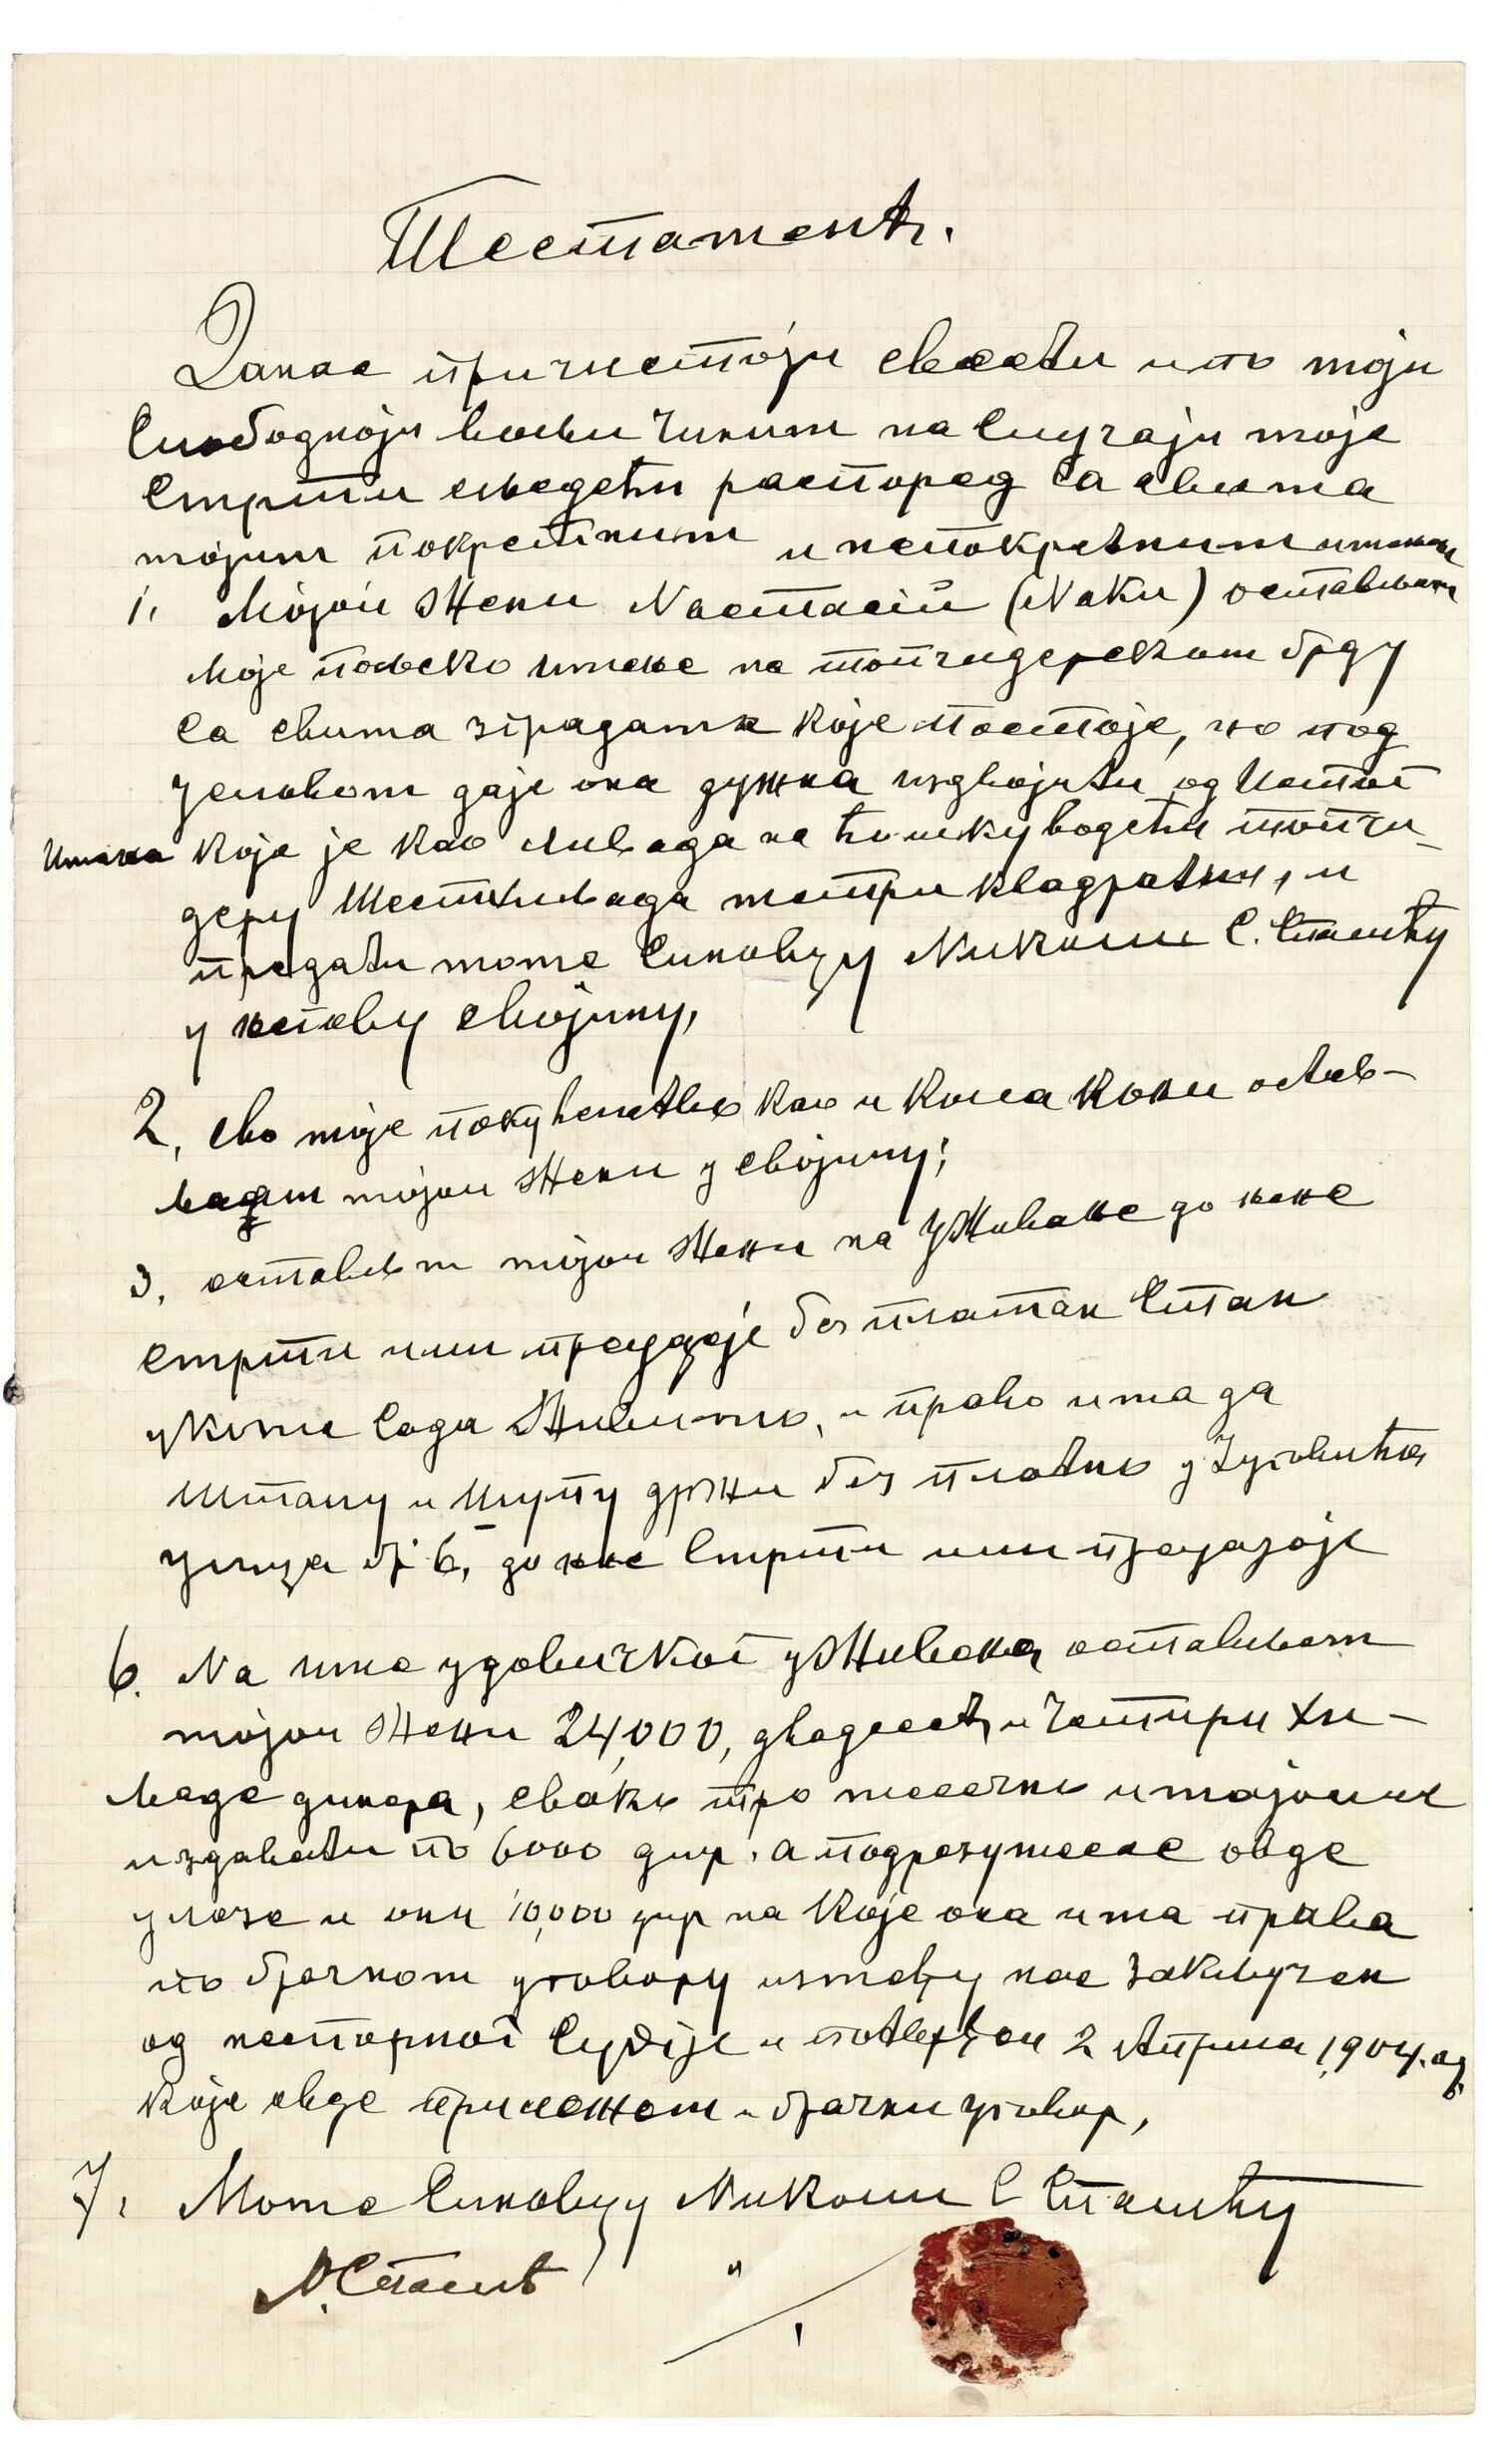 Тестаментъ.
Данас при чистој свести и по моји
слободноји вољи чиним на случају моје
смрти следећи распоред са свима
мојим покретним и непокретним имањем
1, Мојои жени Настасіи (Наки) остављам
моје пољско имање на топчидерском брду
са свима зградама које постоје, но под
условом даје она дужна издвојити од истог
имања које је као ливада на ћошку водећи топчи-
деру шест хиљада метри квадратни, и
предати моме синовцу Николи С. Спасићу
у његову својину,
2, сво моје покућенство као и кола коњи остав-
љам мојои жени у својину;
3, остављам мојои жени на уживање до њене
смрти или преудаје бесплатан стан
у коме сада живимо, и право има да
шталу и шупу држи без платно у Југовића
улица бр 6, до њне смрти или преудаје
6. На име удовичког уживања остављам
мојои жени 24,000, двадесетъ и четири хи-
љаде динара, свако тро месечно имајоисе
издавати по 6000 дин, а подразумесе овде
улазе и они 10,000 дир на које она има права
по брачном уговору између нас закључен
од неспорног судије и потверђен 2 Априла 1904. год.
које овде приложем и брачни уговор,
7, Моме синовцу Николи С Спасићу
Н. Спасић